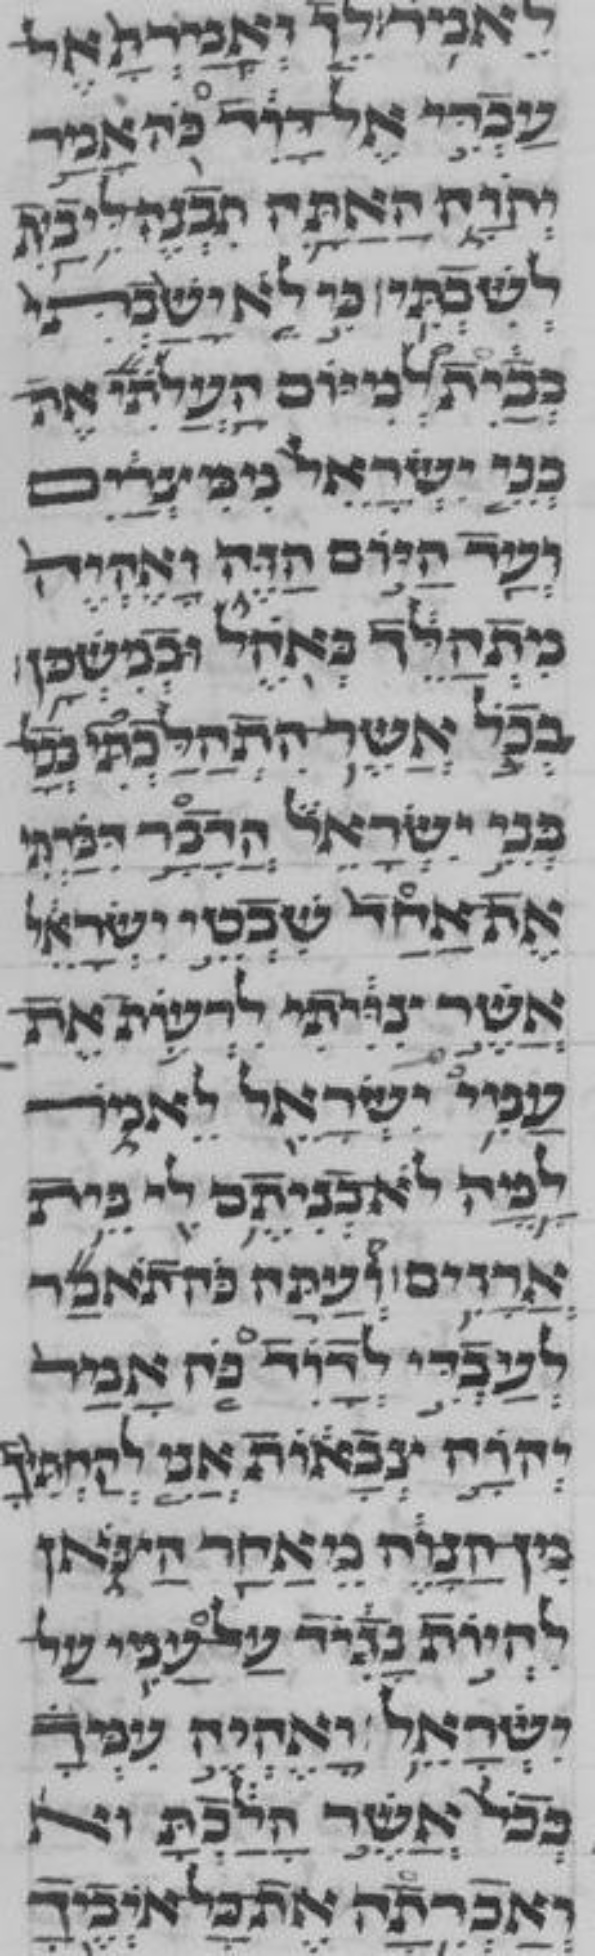 לֵאמֹר׃ לֵךְ וְאָמַרְתָּ אֶל
עַבְדִּי אֶל דָּוִד כֹּה אָמַר
יְהוָה הַאַתָּה תִּבְנֶה לִּי בַיִת
לְשִׁבְתִּי׃ כִּי לֹא יָשַׁבְתִּי
בְּבַיִת לְמִיּוֹם הַעֲלֹתִי אֶת
בְּנֵי יִשְׂרָאֵל מִמִּצְרַיִם
וְעַד הַיּוֹם הַזֶּה וָאֶהְיֶה
מִתְהַלֵּךְ בְּאֹהֶל וּבְמִשְׁכָּן׃
בְּכֹל אֲשֶׁר הִתְהַלַּכְתִּי בְּכָל
בְּנֵי יִשְׂרָאֵל הֲדָבָר דִּבַּרְתִּי
אֶת אַחַד שִׁבְטֵי יִשְׂרָאֵל
אֲשֶׁר צִוִּיתִי לִרְעוֹת אֶת
עַמִּי יִשְׂרָאֵל לֵאמֹר
לָמָּה לֹא בְנִיתֶם לִי בֵּית
אֲרָזִים׃ וְעַתָּה כֹּה תֹאמַר
לְעַבְדִּי לְדָוִד כֹּה אָמַר
יְהוָה צְבָאוֹת אֲנִי לְקַחְתִּיךָ
מִן הַנָּוֶה מֵאַחַר הַצֹּאן
לִהְיוֹת נָגִיד עַל עַמִּי עַל
יִשְׂרָאֵל׃ וָאֶהְיֶה עִמְּךָ
בְּכֹל אֲשֶׁר הָלַכְתָּ וא
וָאַכְרִתָה אֶת כָּל אֹיְבֶיךָ